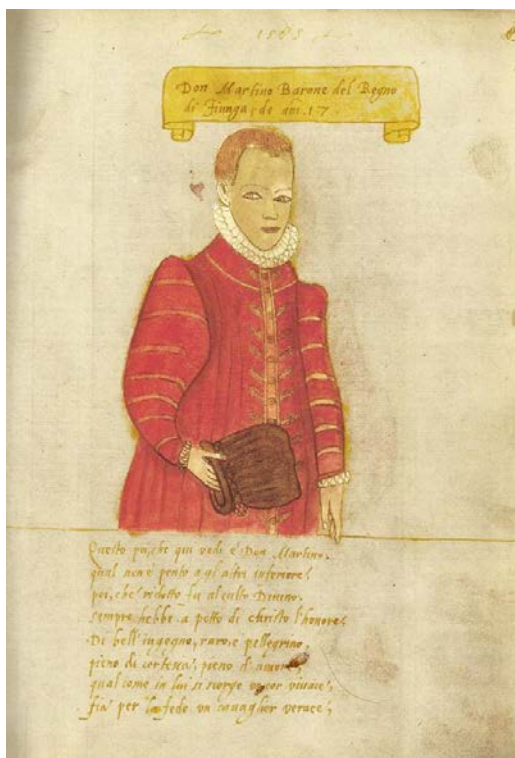 1585
Don Martino Barone del Regno
di Fiunga, de anni .17.
Questo poi, che qui vedi è Don Martino,
qual non è pento a gl'altri inferiore,
poi, che ridotto fu al culto Divino.
sempre hebbe a petto di christo l'honore,
Di bell'ingegno, raro, e pellegrino,
pieno di cortesia, pieno d'amore,
qual come in lui si scorge un cor vivace,
fia per la fede un cavaglier verace,